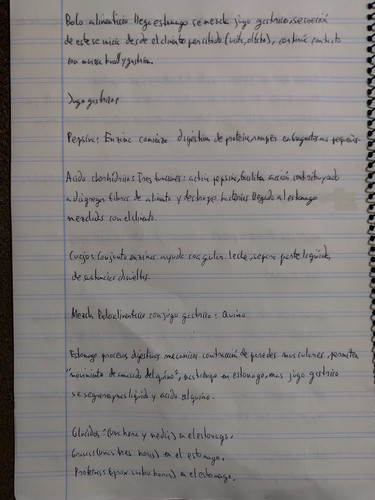 Bolo alimenticio llega estomago se mezcla jugo gastrico, secreción
de este se inicia desde el alimento percibido (vista, olfato), continua contacto
con mucosa bucal y gastrica.
Jugos gastricos
Pepsina: Enzima comienza digestion de proteina, rompe en fragmentos mas pequeños.
Acido clorhídrico: Tres funciones: activa pepsina, facilita acción contribuyendo
a disgregar fibras de alimento y destruye bacterias llegado al estomago
mezcladas con el alimento.
Cuajo: conjunto enzimas ayuda coagular leche, separa parte liquida,
de sustancias disueltas.
Mezcla Bolo alimenticio con jugo gastrico: Quimo
Estomago procesos digestivos mecanicos contracción de paredes musculares, permiten
"movimiento de amasado del quimo", en estomago, mas jugo gastrico
se segrega, mas liquido y acido el quimo.
Glúcidos: (una hora y media) en el estomago.
Grasas (unas tres horas) en el estomago.
Proteinas (aprox cuatro horas) en el estomago.